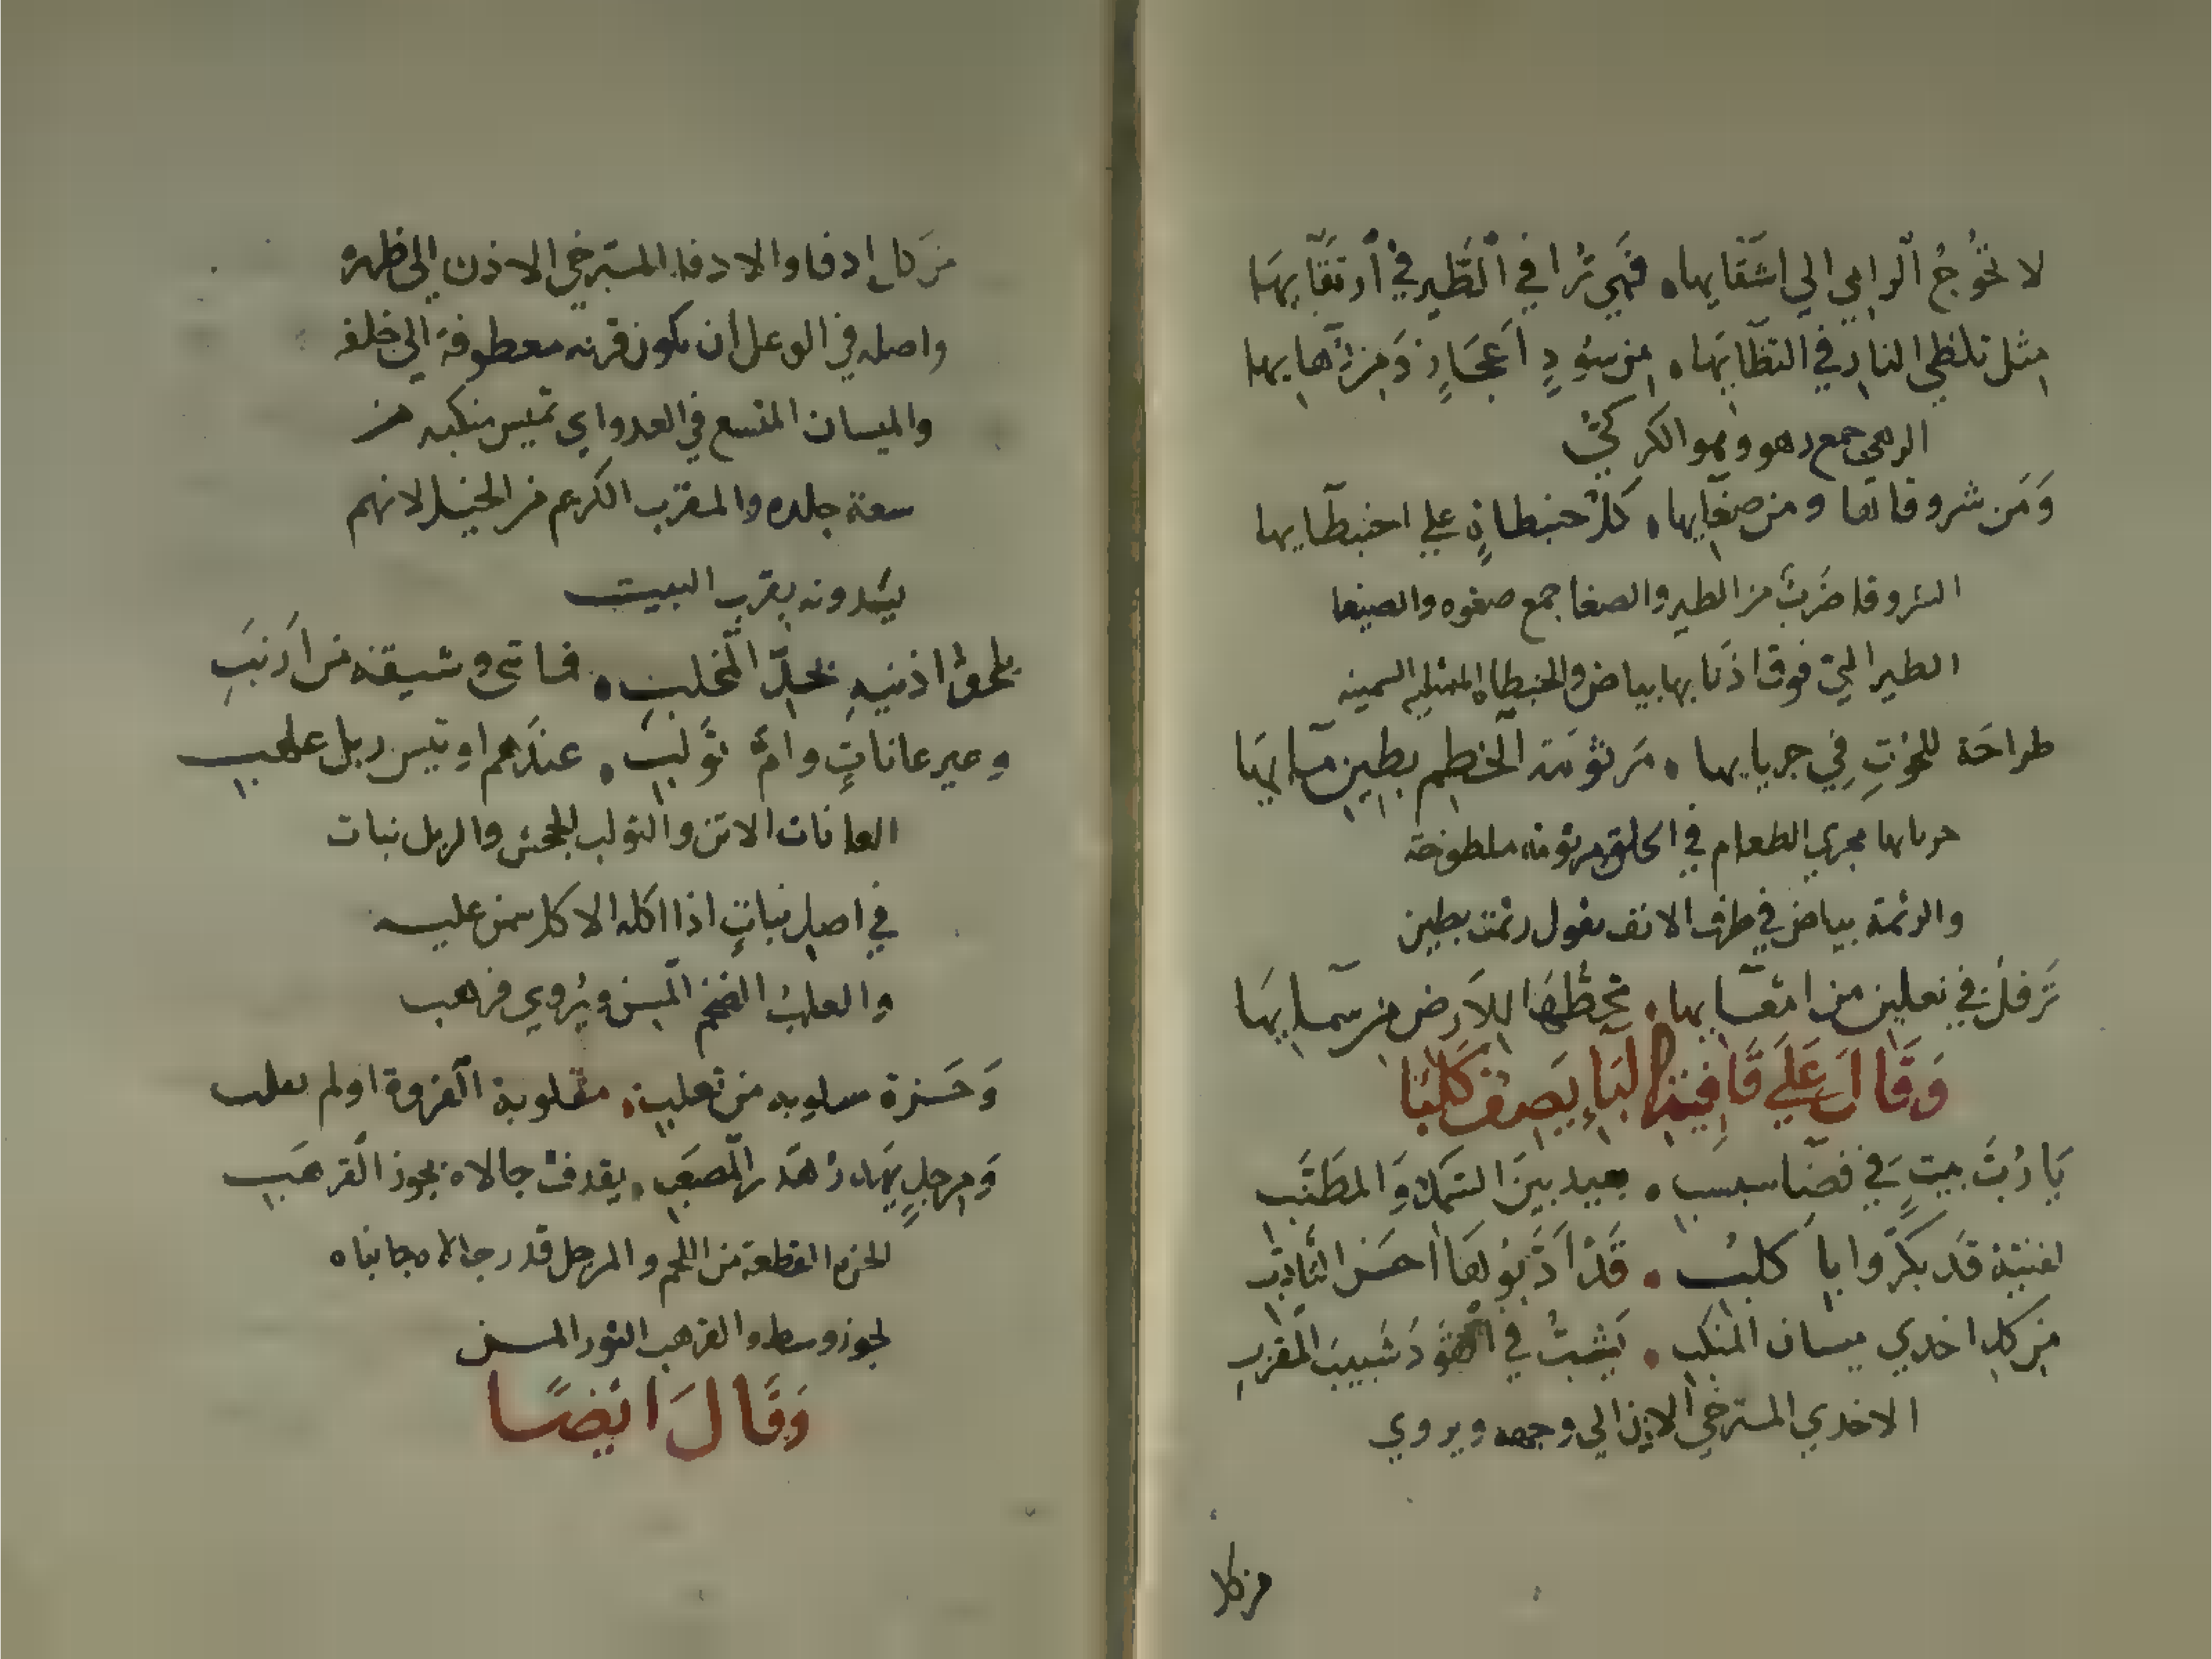 لا تحوج الرامي الي اشقايها فهي ترا في الطير في ارتقايها
مثل تلظي النار في التظايها من سود اعجاز ومن رهايها
الرهي جمع رهو وهو الكركي
ومن شروقاتها ومن صغايها كل حنبطان علي احنبطايها
الشروقا ضرب من الطير والصغا جمع صغوه والصيغا
الطير التي فوق اذنابها بياض والحبنطاه الممتليه السمينه
طراحة للحوت في جريايها مرثومة الخطم بطين مايها
جريايها مجري الطعام في الحلق مرثومة ملطوخة
والرثمة بياض في طرف الانف يقول رثمت بطين
ترفل في نعلين من امعايها تحطها للارض من سمايها
وقال علي قافية البآء يصف كلبا
يا رب بيت في فضا سبسب بعيد بين السمك والمطنب
لفتية قد بكروا باكلب قد ادبوها احسن التادب
من كل اخدي ميسان المنكب يشب في القود شبيب المقرب
الاخدي المسترخي الاذن الي وجهه ويروي
من كل
من كل ادفا والادفا المسترخي الاذن الي ظهره
واصله في الوعل ان يكون قرنه معطوفة الي خلف
والميسان المتسع في العدو اي تميس منكبه من
سعة جلده والمقرب الكريم من الخيل لانهم
يشدونه بقرب البيت
يلحق اذنيه بحد المخلب فما تني وشيقة من ارنب
وعير عانات وام تولب عندهم او تيس ربل علهب
العانات الاتن والتولب الجحش والربل نبات
في اصل نبات اذا اكله الاكل سمن عليه
والعلهب الضخم المسن ويروي قرهب
وحزة مسلوبة من ثعلب مقلوبة الفروة او لم تقلب
ومرجل يهدر هدر المصعب يقذف جالاه بجوز القرهب
الحزه القطعة من اللحم والمرجل قدر جالاه جانباه
لجوز وسط والقرهب الثور المسن
وقال ايضا